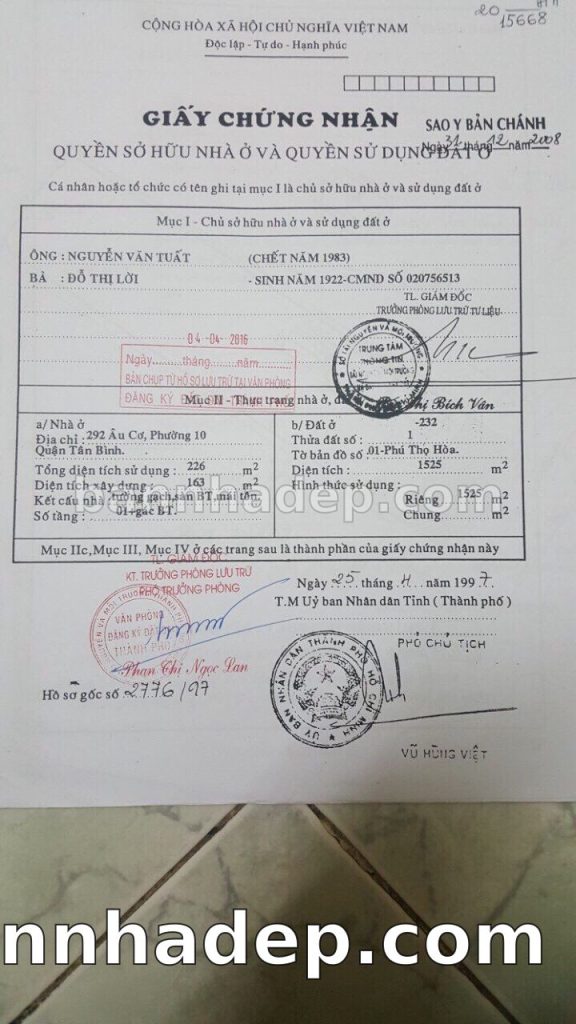 20
15668
CỘNG HÒA XÃ HỘI CHỦ NGHĨA VIỆT NAM
Độc lập - Tự do - Hạnh phúc
GIẤY CHỨNG NHẬN
SAO Y BẢN CHÁNH
QUYỀN SỞ HỮU NHÀ Ở VÀ QUYỀN SỬ DỤNG ĐẤT Ở
Ngày 31 tháng 12 năm 2008
Cá nhân hoặc tổ chức có tên ghi tại mục I là chủ sở hữu nhà ở và sử dụng đất ở
Mục I - Chủ sở hữu nhà ở và sử dụng đất ở
ÔNG : NGUYỄN VĂN TUẤT (CHẾT NĂM 1983)
BÀ : ĐỖ THỊ LỜI - SINH NĂM 1922-CMND SỐ 020756513
TL. GIÁM ĐỐC
TRƯỞNG PHÒNG LƯU TRỮ TƯ LIỆU
04-04-2016
Ngày.........tháng.........năm.........
BẢN CHỤP TỪ HỒ SƠ LƯU TRỮ TẠI VĂN PHÒNG
ĐĂNG KÝ
SỞ TÀI NGUYÊN VÀ MÔI TRƯỜNG
TRUNG TÂM
THÔNG TIN
Mục II - Thực trạng nhà ở,
Thị Bích Vân
a/ Nhà ở
Địa chỉ : 292 Âu Cơ, Phường 10
Quận Tân Bình.
Tổng diện tích sử dụng : 226 m2
Diện tích xây dựng : 163 m2
Kết cấu nhà : tường gạch, sàn BT, mái tôn
Số tầng : 01+gác BT.
b/ Đất ở -232
Thửa đất số : 1
Tờ bản đồ số : 01-Phú Thọ Hòa.
Diện tích : 1525 m2
Hình thức sử dụng :
Riêng 1525 m2
Chung m2
bannhadep.com
Mục IIc, Mục III, Mục IV ở các trang sau là thành phần của giấy chứng nhận này
TL. GIÁM ĐỐC
KT. TRƯỞNG PHÒNG LƯU TRỮ
PHÓ TRƯỞNG PHÒNG
VĂN PHÒNG
ĐĂNG KÝ ĐẤT
THÀNH PHỐ
Phan Thị Ngọc Lan
Hồ sơ gốc số 2776/97
Ngày 25 tháng 11 năm 1997
T.M Uỷ ban Nhân dân Tỉnh ( Thành phố )
PHÓ CHỦ TỊCH
ỦY BAN NHÂN DÂN THÀNH PHỐ HỒ CHÍ MINH
VŨ HÙNG VIỆT
nnhadep.com